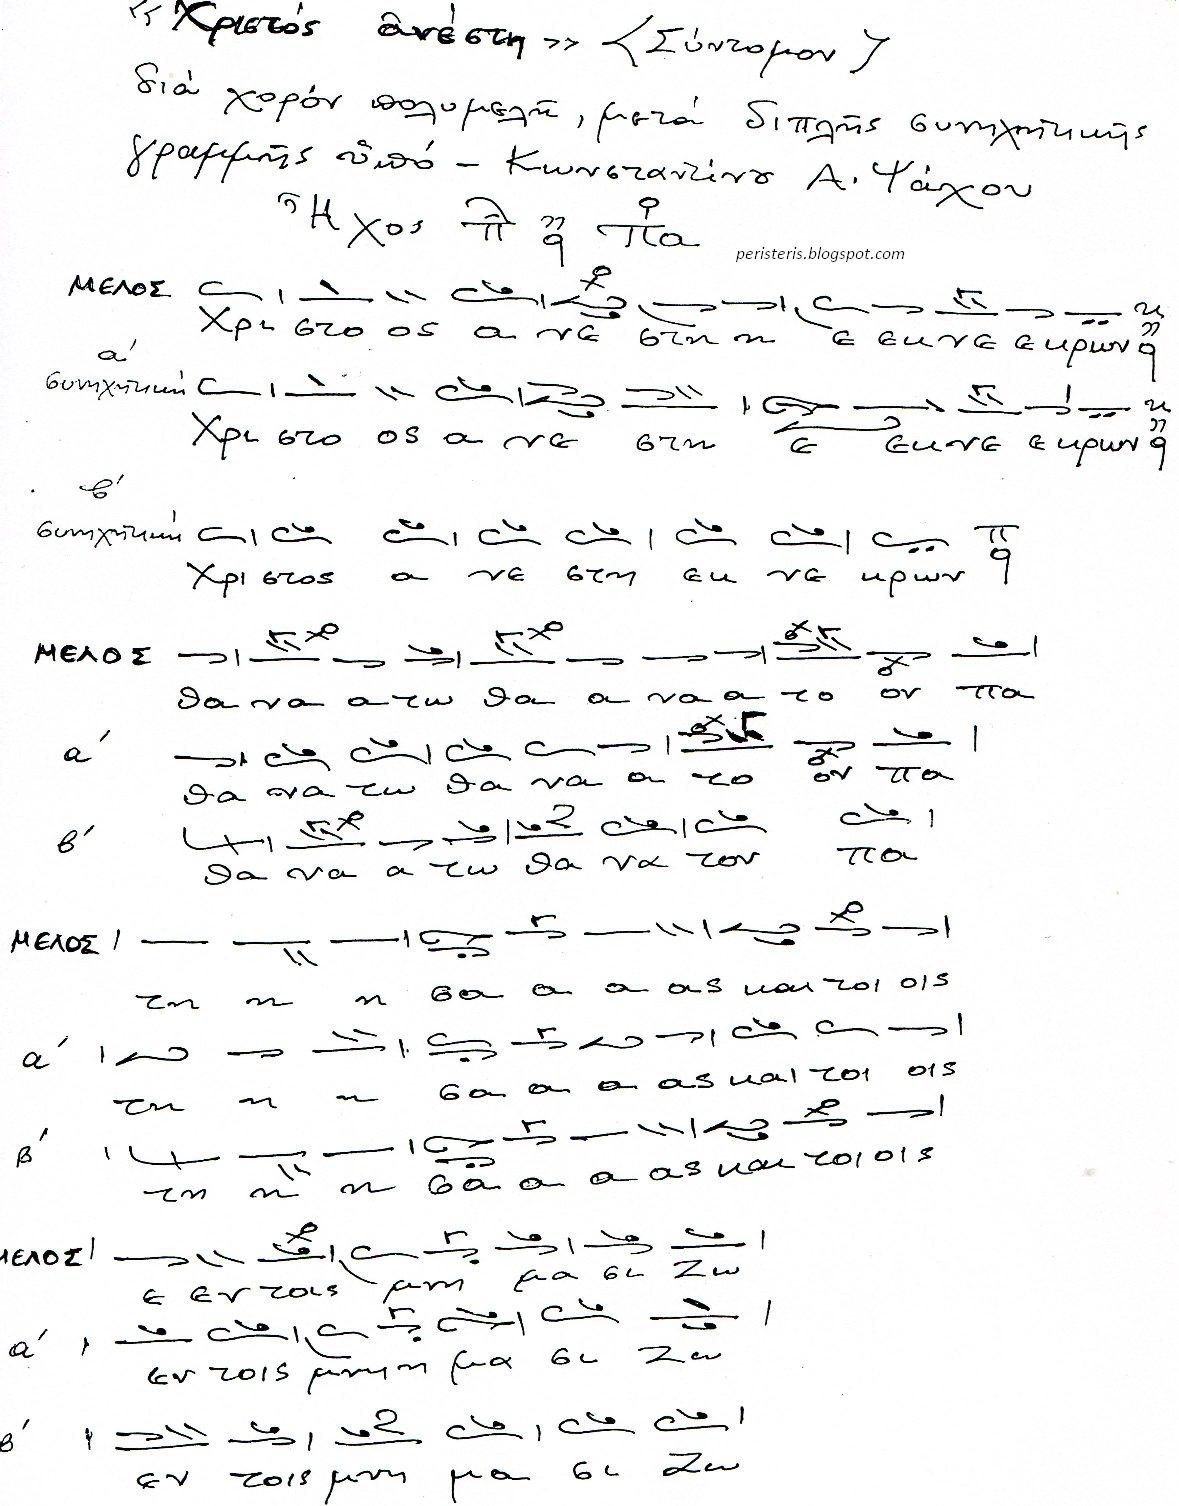 « Χριστός ἀνέστη » < Σύντομον >
διά χορόν πολυμελῆ, μετά διπλῆς συνηχητικῆς
γραμμῆς ὑπό - Κωνσταντίνου Α. Ψάχου
Ἦχος πλ ᾳ πα
peristeris.blogspot.com
ΜΕΛΟΣ
Χρι στο ος α νε στη η ε εκ νε ε κρων
α΄
συνηχητική
Χρι στο ος α νε στη ε εκ νε ε κρων
β΄
συνηχητική
Χρι στος α νε στη εκ νε κρων
ΜΕΛΟΣ
θα να α τω θα α να α το ον πα
α΄
θα να τω θα να α το ον πα
β΄
θα να α τω θα να τον πα
ΜΕΛΟΣ
τη η η σα α α ας και τοι οις
α΄
τη η η σα α α ας και τοι οις
β΄
τη η η σα α α ας και τοι οις
ΜΕΛΟΣ
ε εν τοις μνη μα σι ζω
α΄
εν τοις μνη η μα σι ζω
β΄
εν τοις μνη μα σι ζω